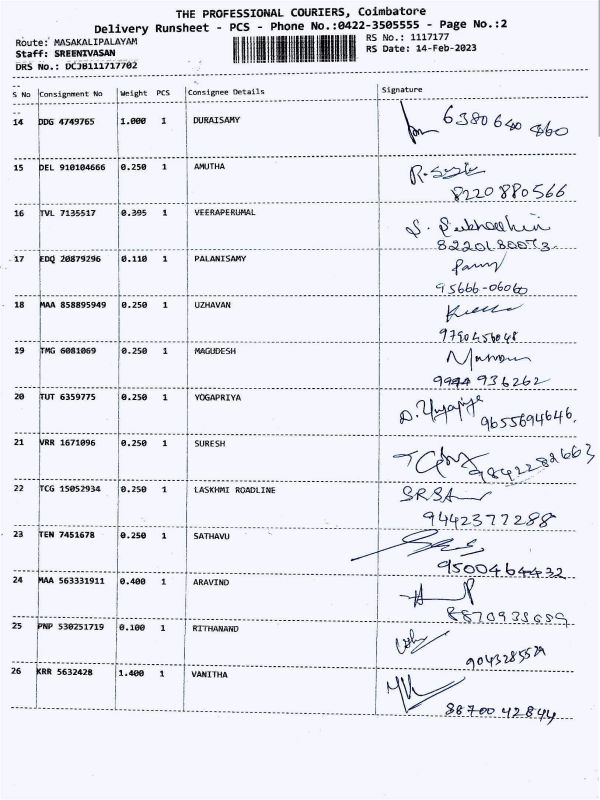 THE PROFESSIONAL COURIERS, Coimbatore
Delivery Runsheet - PCS - Phone No.:0422-3505555 - Page No.:2
Route: MASAKALIPALAYAM
RS No.: 1117177
Staff: SREENIVASAN
RS Date: 14-Feb-2023
DRS No.: DCJB111717702
S No Consignment No Weight PCS Consignee Details Signature
14 DDG 4749765 1.000 1 DURAISAMY
6380640460
15 DEL 910104666 0.250 1 AMUTHA
8220880566
16 TVL 7135517 0.395 1 VEERAPERUMAL
8220180073
17 EDQ 20879296 0.110 1 PALANISAMY
95666-06060
18 MAA 858895949 0.250 1 UZHAVAN
9790456048
19 TMG 6081069 0.250 1 MAGUDESH
9994 936262
20 TUT 6359775 0.250 1 YOGAPRIYA
9655694646.
21 VRR 1671096 0.250 1 SURESH
9842282663
22 TCG 15052934 0.250 1 LASKHMI ROADLINE
9442377288
23 TEN 7451678 0.250 1 SATHAVU
9500464432
24 MAA 563331911 0.400 1 ARAVIND
25 PNP 530251719 0.100 1 RITHANAND
26 KRR 5632428 1.400 1 VANITHA
8870042844